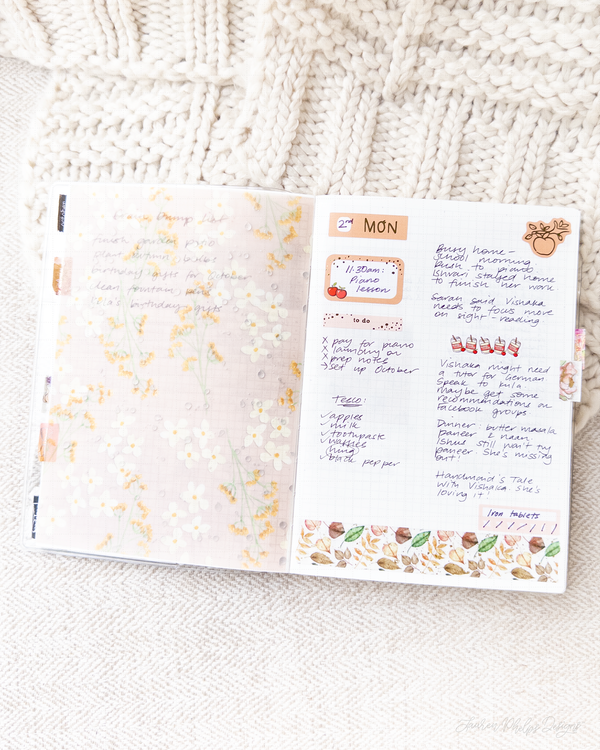 Brain Dump List
finish garden prep
plant autumn bulbs
birthday gifts for October
clean fountain pens
birthday gifts
2nd MON
11:30am:
Piano
lesson
to do
x pay for piano
x laundry on
x prep notes
set up October
Tesco:
✓apples
✓milk
✓toothpaste
✓
(hing)
✓black pepper
Busy home -
school morning
rush to piano
Ishvari stayed home
to finish her work
Sarah said Vishaka
needs to focus more
on sight-reading
Vishaka might need
a tutor for German
Speak to
maybe get some
recommendations on
facebook groups
Dinner: butter masala
paneer & naan
Ishue still won't try
paneer. She's missing
out!
Handmaid's Tale
with Vishaka. She's
loving it!
Iron tablets